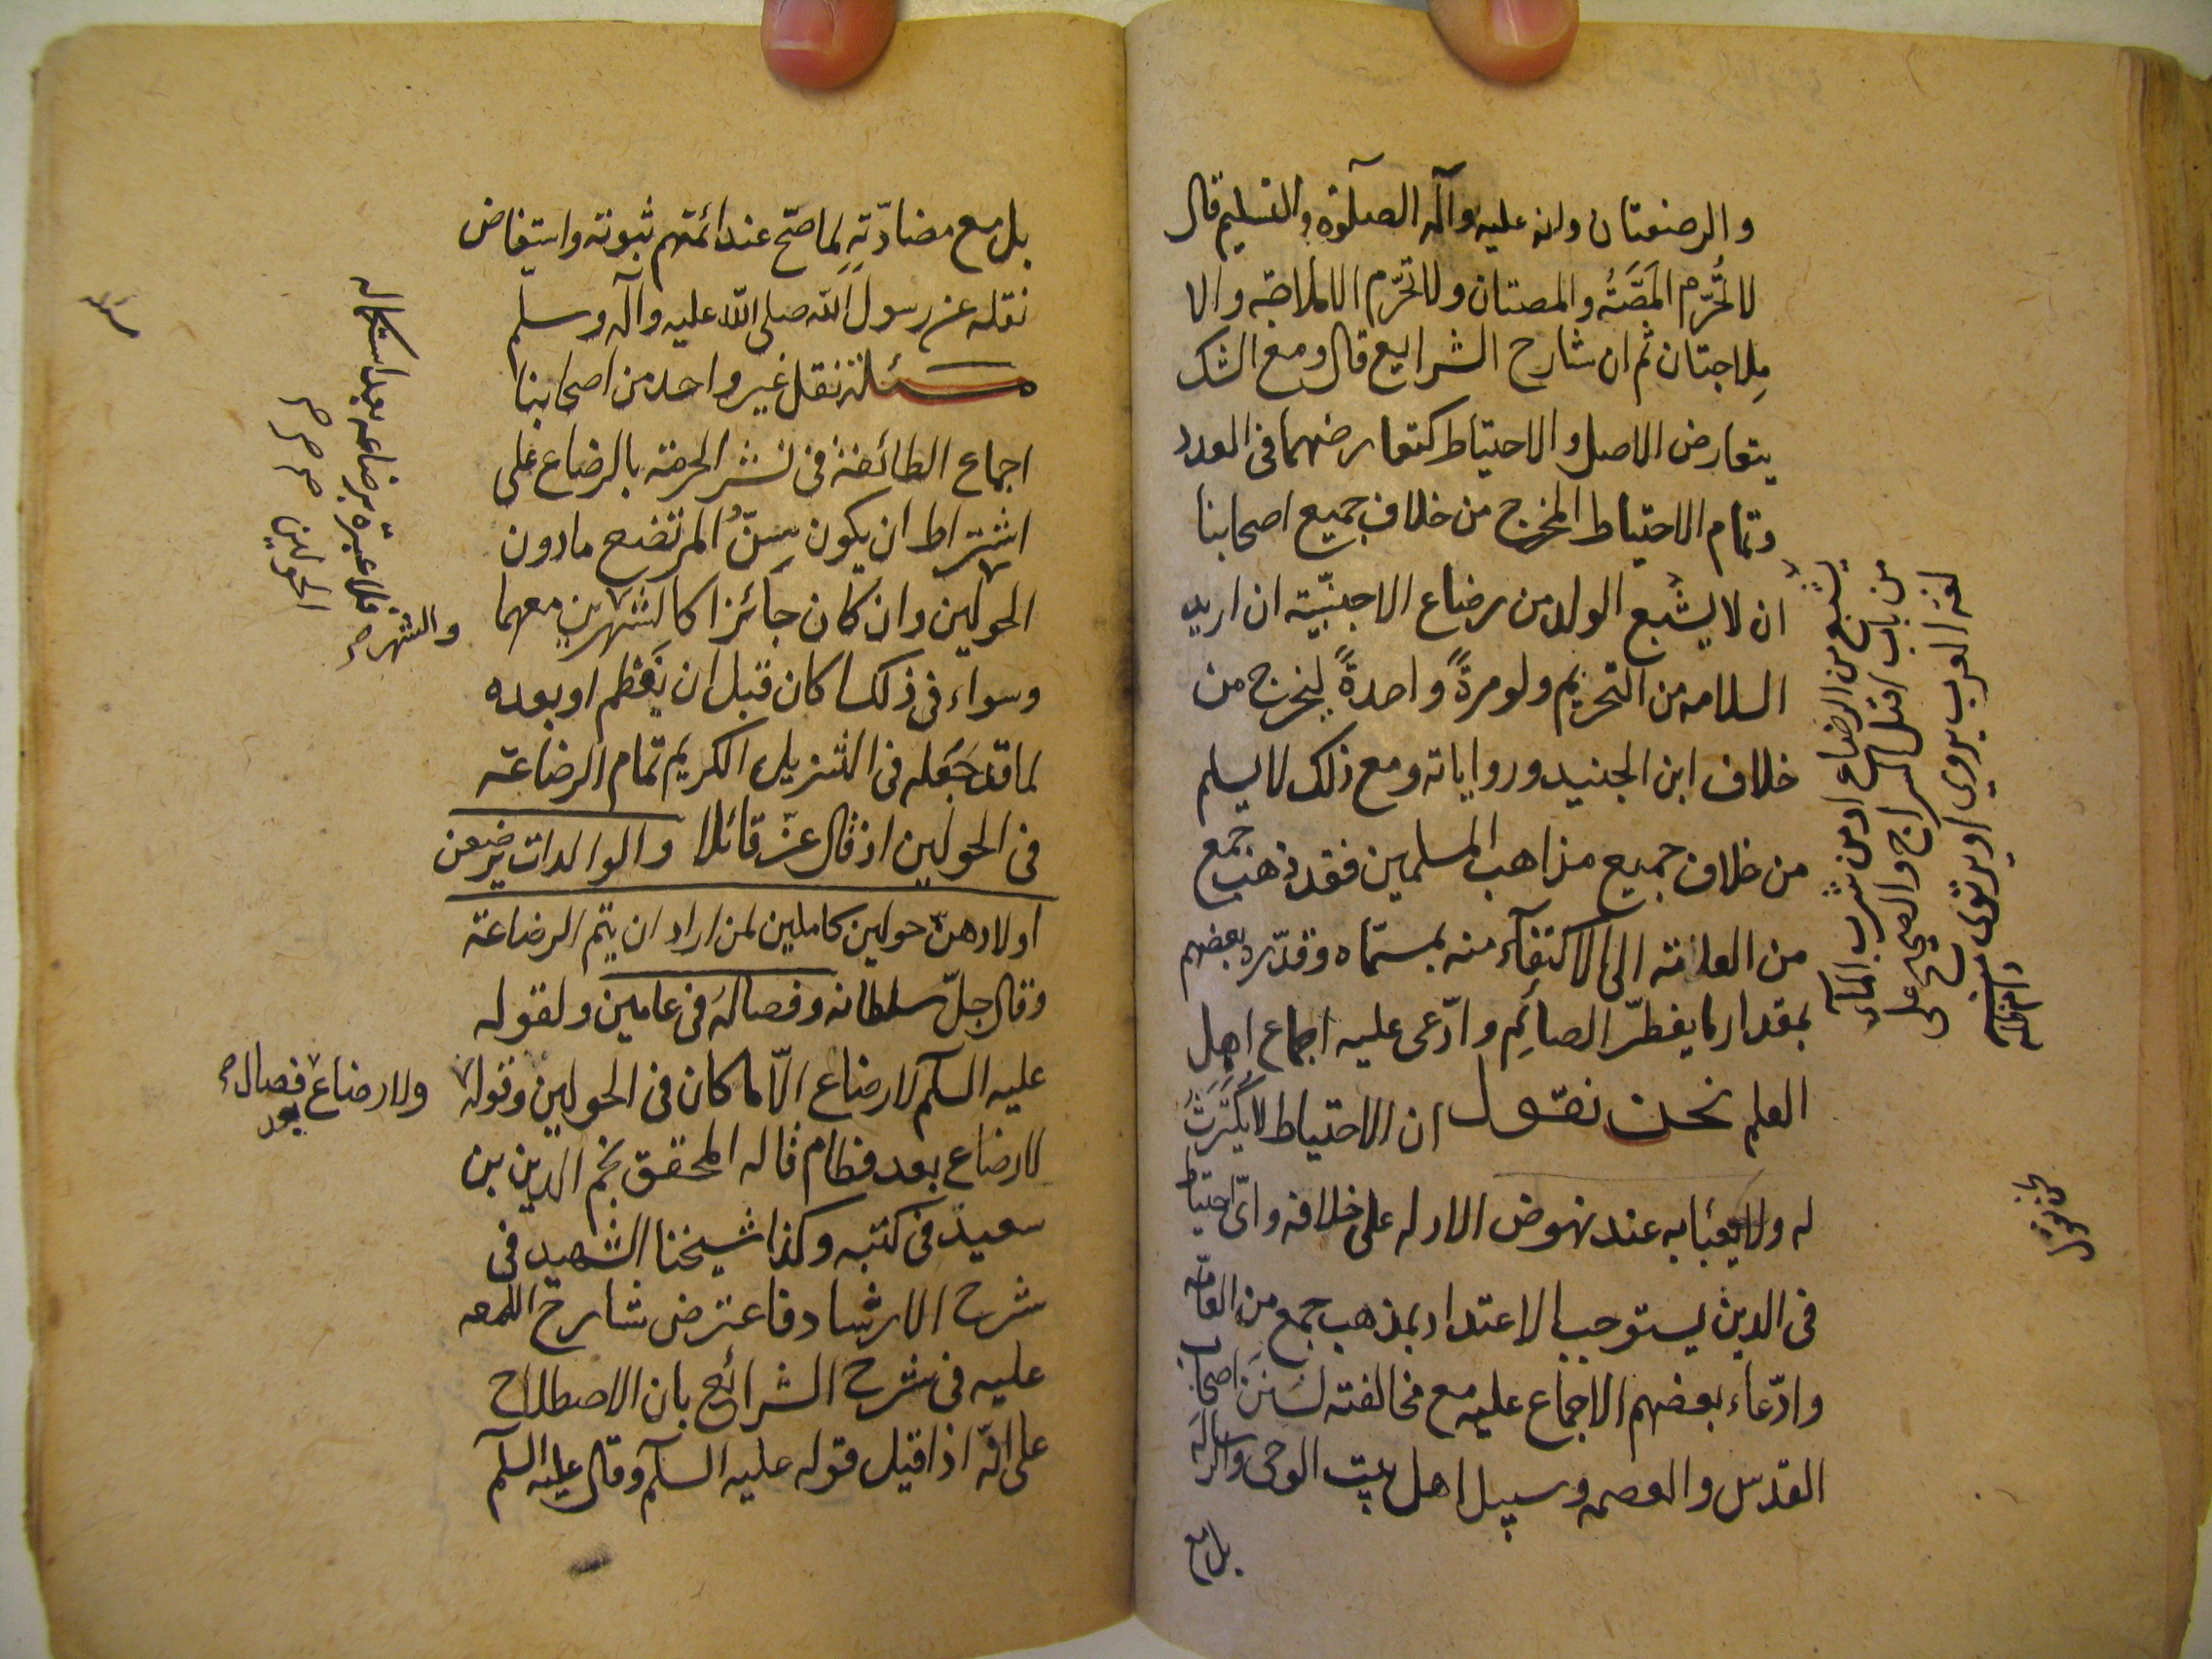 والرضعتان وانه عليه وآله الصلوة والتسليم قال
لا تُحرّم المَصَّةُ والمصتان ولا تحرّم الاملاجة والا
مِلاجتان ثم ان شارح الشرايع قال ومع الشك
يتعارض الاصل والاحتياط كتعارضهما في العدد
وتمام الاحتياط المخرج من خلاف جميع اصحابنا
ان لا يشبع الولد من رضاع الاجنبيّة ان اريد
السلامه من التحريم ولو مرةً واحدةً ليخرج من
خلاف ابن الجنيد ورواياته ومع ذلك لا يسلم
من خلاف جميع مذاهب المسلمين فقد ذهب جمع
من العامّة الى الاكتفآء منه بمسمّاه وقدّره بعضهم
بمقدار ما يفطّر الصائم وادّعى عليه اجماع اهل
العلم نحن نقول ان الاحتياط لا يُكتَرَثُ
له ولا يعبأ به عند نهوض الادله على خلافه واىّ احتياط
في الدين يستوجب الاعتداد بمذهب جمع من العامّة
وادّعاء بعضهم الاجماع عليه مع مخالفته لسَنَن اصحاب
القدس والعصمه وسبيل اهل بيت الوحى والرسالة
بل مع
يشبع من الرضاع او من شرب المآء
من باب افتعل السراج والصحيح على
لغة العرب يروي او يرتوى
دام ظله
بل مع مضادّتهِ لما صحّ عند ائمتهم ثبوته واستفاض
نقله عن رسول الله صلى الله عليه وآله وسلم
مسئلة نقل غير واحد من اصحابنا
اجماع الطائفة في نشر الحرمة بالرضاع على
اشتراط ان يكون سِنّ المرتضع ما دون
الحولين وان كان جائزا كالشهرين معهما
وسواء في ذلك اكان قبل ان يَفطم او بعده
لما قد جَعله في التنزيل الكريم تمام الرضاعة
في الحولين اذ قال عزّ قائلا والوالدات يرضعن
اولادهنّ حولين كاملين لمن اراد ان يتم الرضاعة
وقال جلّ سلطانه وفصالهُ في عامين ولقوله
عليه السلم لا رضاع الّا ما كان في الحولين وقوله
لا رضاع بعد فطام قاله المحقق نجم الدين بن
سعيد في كتبه وكذا شيخنا الشهيد في
شرح الارشاد فاعترض شارح اللمعه
عليه في شرح الشرائع بان الاصطلاح
على انّه اذا قيل قوله عليه السلم وقال عليه السلم
فلا عبرة برضاعه بعد استكماله
الحولين
والشهر
ولا رضاع بعد فصال